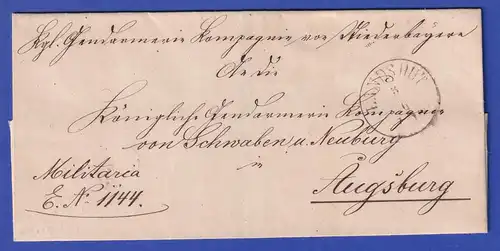 Kgl. Gendarmerie Kompagnie von Niederbayern
An die
Königliche Gendarmerie Kompagnie
von Schwaben u. Neuburg
in
Augsburg
Militaria
E. No. 1144.
LANDSHUT